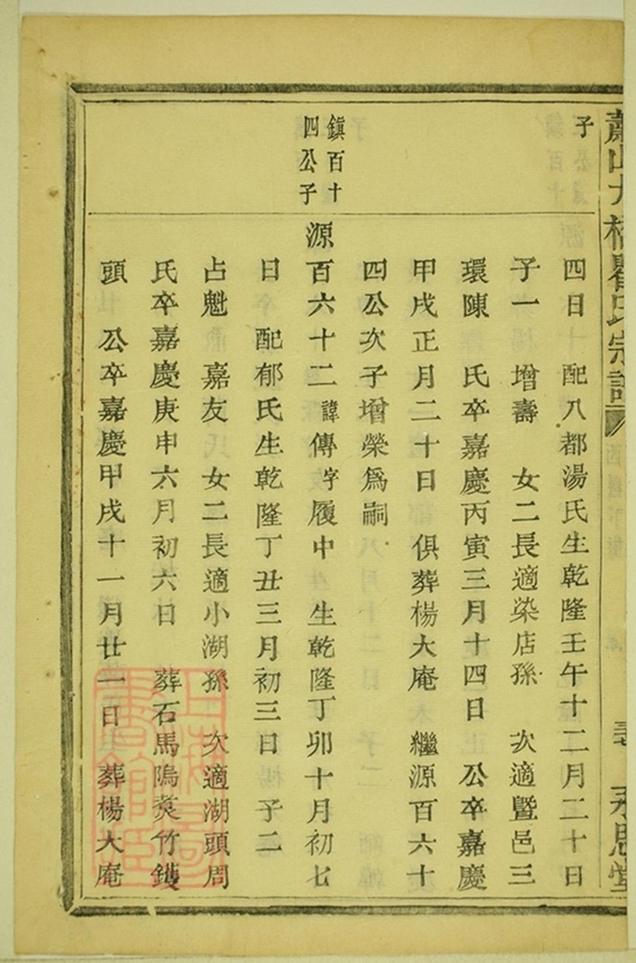 蕭山大橋瞿氏宗譜
永思堂
子
四日 配八都湯氏生乾隆壬午十二月二十日
子一 增壽 女二長適染店孫 次適暨邑三
環陳 氏卒嘉慶丙寅三月十四日 公卒嘉慶
甲戌正月二十日 俱葬楊大庵 繼源百六十
四公次子增榮為嗣
鎮百十
四公子
源百六十二諱傳字履中 生乾隆丁卯十月初七
日 配郁氏生乾隆丁丑三月初三日 子二
占魁 嘉友 女二長適小湖孫 次適湖頭周
氏卒嘉慶庚申六月初六日 葬石馬隖炭竹鑊
頭 公卒嘉慶甲戌十一月廿一日 葬楊大庵